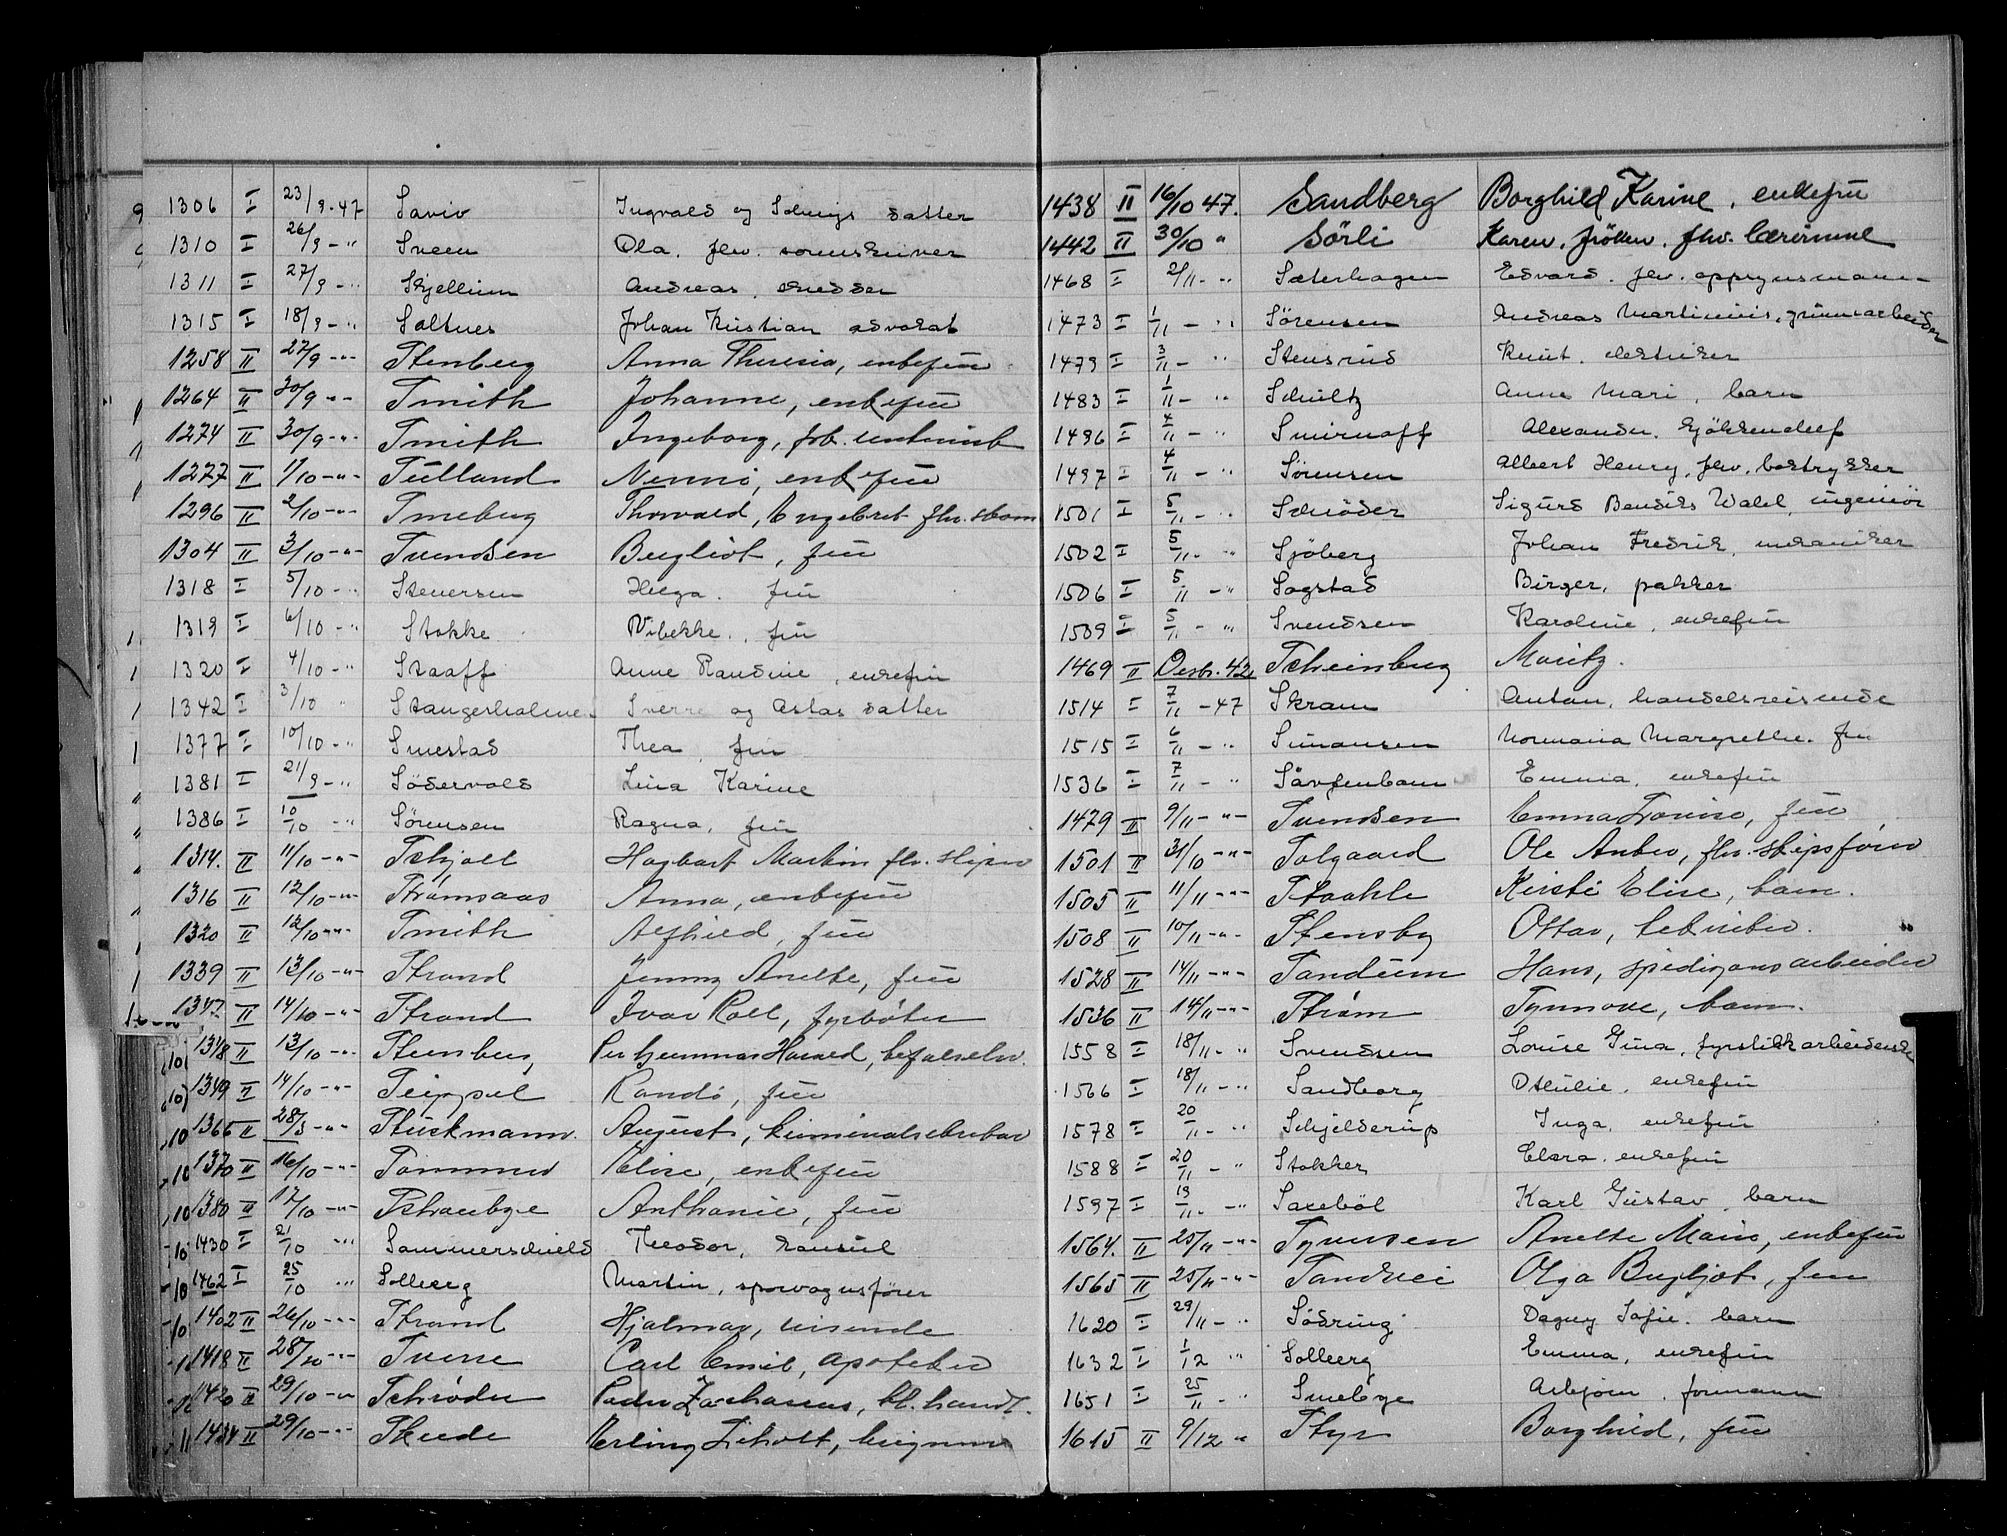 1306 I 23/9-47 Saviv Ingvald og Solveigs datter
1310 I 26/9 - " Sveen Ola. fhv. sorenskriver
1311 I 27/9 - " Skjellum Andreas, snedker
1315 I 18/9 - " Saltnes Johan Kristian advokat
1258 II 27/9 - " - Stenberg Anna Theresia, enkefru
1264 II 30/9 - " - Smith Johanne, enkefru
1274 II 30/9 - " - Smith Ingeborg, frk.
1277 II 1/10 - " - Sulland Nenni, enkefru
1296 II 2/10 - " - Thorvald, Engebret fhv.
1304 II 3/10 - " - Svendsen Bergliot, fru
1318 I 5/10 - " Steversen Helga. fru
1319 I 6/10 - " Stokke Vibekke, fru
1320 I 4/10 - " Staaff Anne Randine, enkefru
1342 I 3/10 " Stangerholme Sverre og Astas datter
1377 I 10/10 - " Smestad Thea, fru
1381 I 21/9 - " Södervold Lina Karine
1386 I 10/10 - " Sørensen Ragna, fru
1314. II 11/10 - " - Schjoll Hagbart Martin fhv.
1316 II 12/10 - " - Strømsaas Anna, enkefru
1320 II 12/10 - " - Smith Alfhild, fru
1339 II 13/10 - " - Strand Jenny Anette, fru
1347 II 14/10 - " - Strand Ivar Roll, fyrbøter
1348 II 13/10 - " - Stensberg Per Hjemmas Harald, befalselev.
1349 II 14/10 - " - Seippel Randi, fru
1366 II 28/3 - " - Stuckmann. August, kriminalsekretær
1370 II 16/10 - " - Sommer Elise, enkefru
1380 II 17/10 - " - Schaubye Anthonie, fru
1430 I 21/10 " Sommerschield Theodor, konsul
1462 I 25/10 " Solberg Martin, sporvognsfører
1402 II 26/10 - " - Strand Hjalmar, reisende
1418 II 28/10 - " - Sverre Carl Emil, apoteker
1420 II 29/10 - " - Schrøder Peder Zacharias, kl. handl.
1434 II 29/10 - " - Skude Erling
1438 II 16/10 47. Sandberg Borghild Karine, enkefru
1442 II 30/10 " Sörli Karen, fröken, fhv. lærerinne
1468 I 2/11 - " Sæterhagen Edvard. fhv. oppsynsmann
1473 I 1/11 - " Sörensen Andreas Martinius, grunnarbeider
1479 I 3/11 - " Stensrud Knut. elektriker
1483 I 1/11 - " Schultz Anne Mari, barn
1496 I 4/11 - " Smirnoff Alexander. kjökkensjef
1497 I 4/11 - " Sörensen Albert Henry, fhv. boktrykker
1501 I 5/11 - " Schöder Sigurd Bendiks Wahl, ingeniör
1502 I 5/11 - " Sjöberg Johan Fredrik, mekaniker
1506 I 5/11 - " Sogstad Birger, pakker
1509 I 5/11 - " Svendsen Karoline, enkefru
1469 II Desbr. 42. Scheinberg Moritz.
1514 I 7/11 - 47 Skram Anton, handelsreisende
1515 I 6/11 - " Simonsen Normana Margrethe. fru
1536 I 7/11 - " Emma, enkefru
1479 II 9/11 - " - Svendsen Emma Lovise, fru
1501 II 31/10 - " - Solgaard Ole Anber, fhv. skipsfører
1505 II 11/11 - " - Staahle Kirsti Elise, barn.
1508 II 10/11 - " - Stensby Ottar, tekniker.
1528 II 14/11 - " - Sandum Hans, spedisjonsarbeider
1536 II 14/11 - " - Strøm Synnøve, barn.
1558 I 18/11 - " Svendsen Louise Gina, fyrstikkarbeiderske
1566 I 18/11 - " Sandborg Othilie, enkefru
1578 I 20/11 - " Schjelderup Inga, enkefru
1588 I 20/11 - " Stokker Clara. enkefru
1597 I 19/11 - " Saxebøl Karl Gustav, barn
1564. II 25/11 - " - Syversen Anette Marie, enkefru
1565 II 25/11 - " - Sandvei Olga Bergljot, fru
1620 I 29/11 - " Södring Dagny Sofie. barn
1632 I 1/12 " Solberg Emma, enkefru
1651 I 25/11 - " Smebye Asbjörn, formann
1615 II 9/12 " Styr Borghild, fru